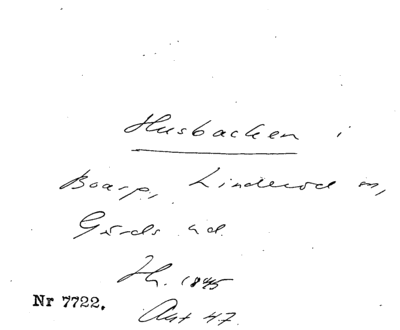 Husbacken i
Boarp, Linderöd sn,
Gärds hd.
Jh. 1845
Akt 47.
Nr 7722.